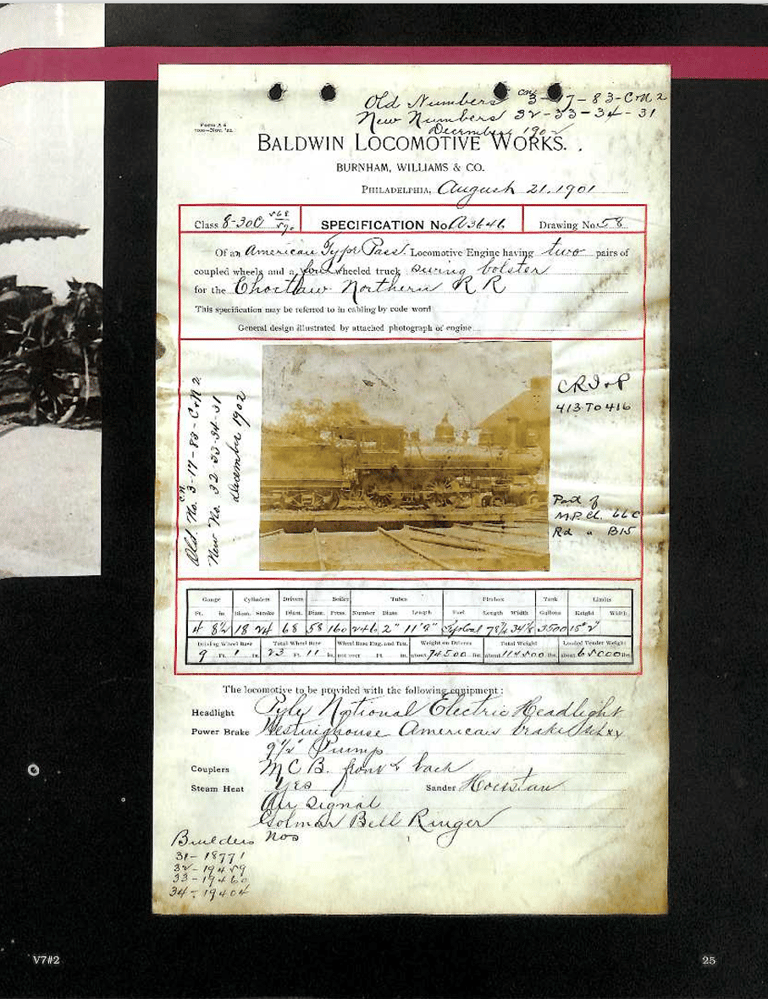 Old Numbers CN 3-17-83-C&N 2
New Numbers 32-33-34-31
December 1902
BALDWIN LOCOMOTIVE WORKS.
BURNHAM, WILLIAMS & CO.
PHILADELPHIA, August 21. 1901
Class 8-30C 568 570 SPECIFICATION No. A3646 Drawing No. 58
Of an American Type Pass. Locomotive Engine having two pairs of
coupled wheels and a four wheeled truck swing bolster
for the Choctaw Northern R R
This specification may be referred to in cabling by code word
General design illustrated by attached photograph of engine
Old No. CN 3-17-83-C&N 2
New No. 32-33-34-31
December 1902
CRI&P
413 TO 416
Part of
M.P. Cl. 66C
Rd " B15
Gauge Cylinders Drivers Boiler Tubes Firebox Tank Limits
Ft. in. Diam. Stroke Diam. Diam. Press. Number Diam. Length Fuel Length Width Gallons Height Width
4 8½ 18 24 68 58 160 246 2" 11'9" Coal 3500 15' 2"
Driving Wheel Base Total Wheel Base Wheel Base Eng. and Ten. Weight on Drivers Total Weight Loaded Tender Weight
9 Ft. 1 in. 23 Ft. 11 in. about 74500 lbs. about 114500 lbs. about 65000 lbs.
The locomotive to be provided with the following equipment:
Headlight Pyle National Electric Headlight
Power Brake Westinghouse American brake
9½" Pump
Couplers M.C.B. front & back
Steam Heat Yes Sander Houston
Air Signal
Golmar Bell Ringer
Builders Nos
31-18771
32-19459
33-19460
34-19404
V7#2
25